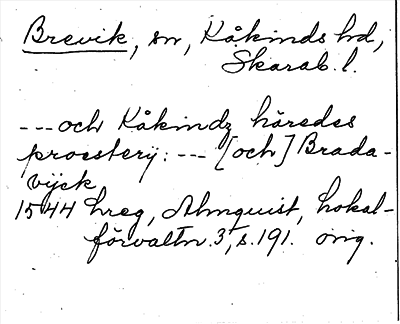 Brevik, sn, Kåkinds hd,
Skarab. l.
--- och Kåkindz häredes
proesterij: --- [och] Brada-
vijck
1544 hreg, Almquist, Lokal-
förvaltn. 3, s. 191. orig.